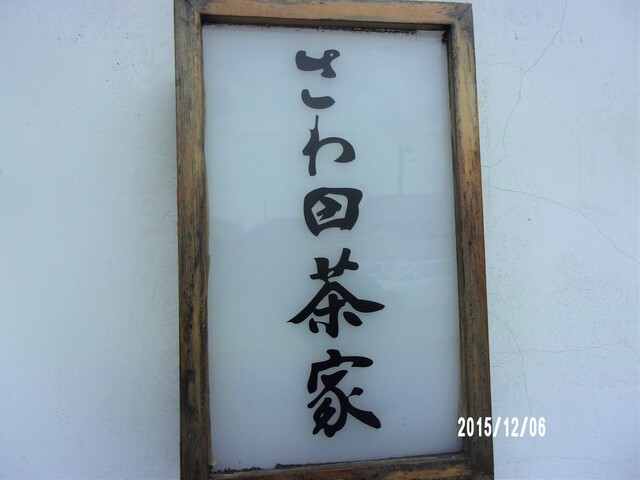 さわ田茶家
2015/12/06